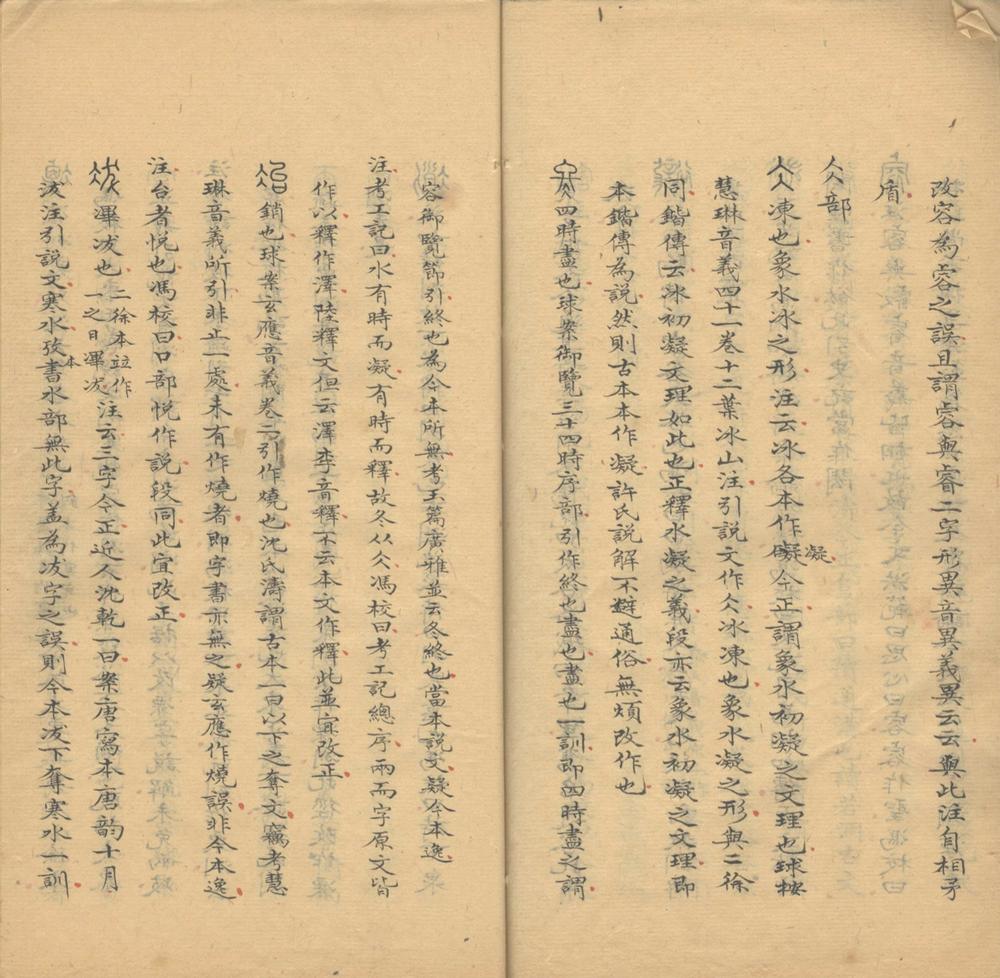 改容為睿之誤且謂容與睿二字形異音異義異云云與此注自相矛
盾
仌部
仌凍也象水冰之形注云冰各本作凝今正謂象水初凝之文理也球按
慧琳音義四十一卷十二葉冰山注引説文作仌冰凍也象水凝之形與二徐
同鍇傳云冰初凝文理如此也正釋水凝之義段亦云象水初凝之文理即
本鍇傳為説然則古本本作凝許氏説解不避通俗無煩改作也
四時盡也球案御覽三十四時序部引作終也盡也盡也一訓即四時盡之謂
容御覽節引終也為今本所無考玉篇廣雅並云冬終也當本説文疑今本逸
注考工記曰水有時而凝有時而釋故冬从仌馮校曰考工記總序兩而字原文皆
作以釋作澤陸釋文但云澤李音釋不云本文作釋此並宜改正
冶銷也球案玄應音義卷二引作燒也沈氏濤謂古本一曰以下之奪文竊考慧
琳音義所引非止一處未有作燒者即字書亦無之疑玄應作燒誤非今本逸
注台者悦也馮校曰口部悦作説段同此宜改正
滭冹也二徐本竝作一之日滭冹注云三字今正近人沈乾一曰案唐寫本唐韵十月
冹注引説文寒水攷本書水部無此字葢為冹字之誤則今本冹下奪寒水一訓